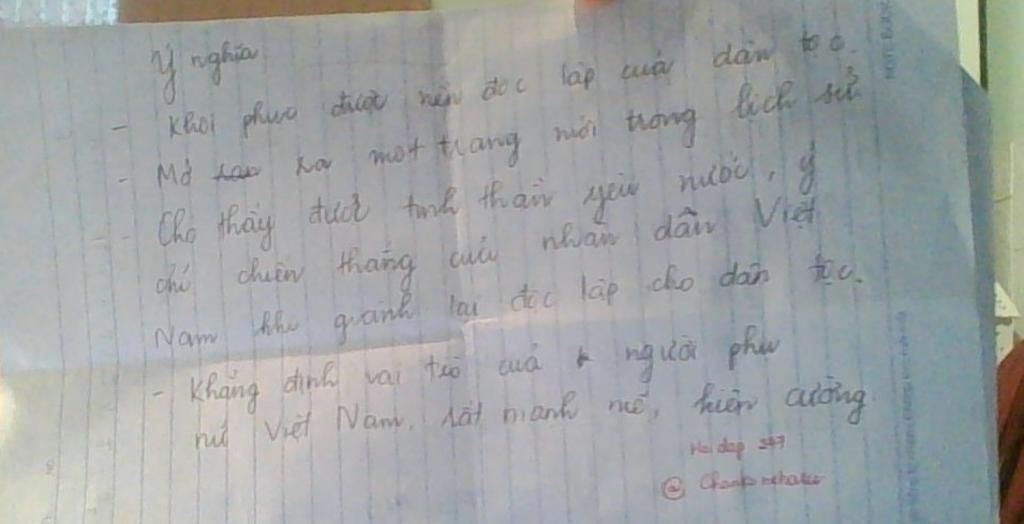 Ý nghĩa
- Khôi phục được nền độc lập của dân tộc.
- Mở ra một trang mới trong lịch sử
- Cho thấy được tinh thần yêu nước, ý
chí chiến thắng của nhân dân Việt
Nam khi giành lại độc lập cho dân tộc.
- Khẳng định vai trò của người phụ
nữ Việt Nam, rất mạnh mẽ, kiên cường.
Hoidap 247